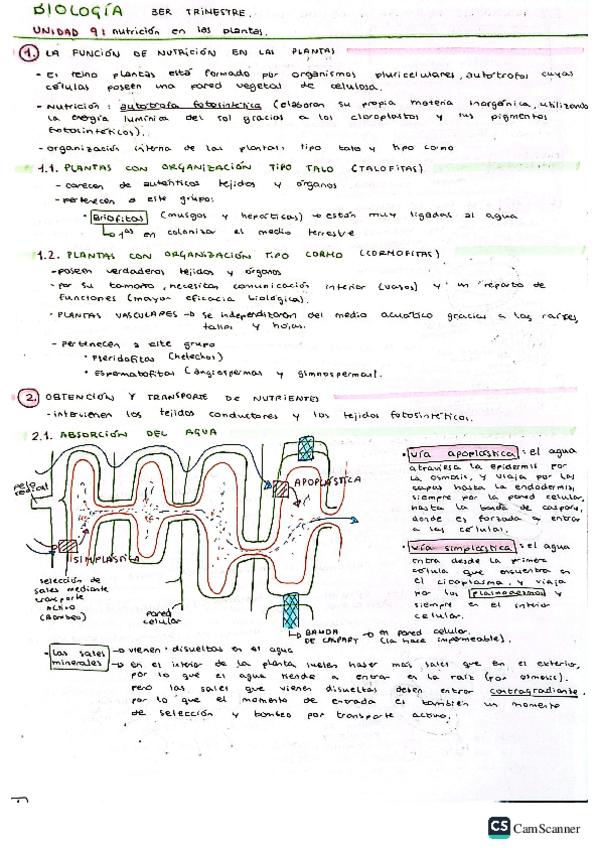 BIOLOGÍA 3ER TRIMESTRE.
UNIDAD 9: nutrición en las plantas.
1. LA FUNCIÓN DE NUTRICIÓN EN LAS PLANTAS
- El reino plantas está formado por organismos pluricelulares, autótrofos cuyas
células poseen una pared vegetal de celulosa.
- Nutrición: autótrofa fotosintética (elaboran su propia materia inorgánica, utilizando
la energía lumínica del sol gracias a los cloroplastos y sus pigmentos
fotosintéticos).
- organización interna de las plantas: tipo talo y tipo cormo
1.1. PLANTAS CON ORGANIZACIÓN TIPO TALO (TALOFITAS)
- carecen de auténticos tejidos y órganos
- pertenecen a este grupo:
• Briofitas (musgos y hepáticas) → están muy ligadas al agua
↳ 1as en colonizar el medio terrestre
1.2. PLANTAS CON ORGANIZACIÓN TIPO CORMO (CORMOFITAS)
- poseen verdaderos tejidos y órganos
- por su tamaño, necesitan comunicación interior (vasos) y un reparto de
funciones (mayor eficacia biológica).
• PLANTAS VASCULARES → se independizaron del medio acuático gracias a las raíces,
tallos y hojas.
- pertenecen a este grupo
• Pteridofitas (helechos)
• Espermatofitas (angiospermas y gimnospermas).
2. OBTENCIÓN Y TRANSPORTE DE NUTRIENTES
- intervienen los tejidos conductores y los tejidos fotosintéticos.
2.1. ABSORCIÓN DEL AGUA
pelo
radical
APOPLÁSTICA
SIMPLÁSTICA
selección de
sales mediante
transporte
activo
(Bombeo)
pared
celular
↳ BANDA
DE CASPARY
→ en pared celular.
(la hace impermeable).
• vía apoplástica: el agua
atraviesa la epidermis por
la osmosis, y viaja por las
capas hasta la endodermis,
siempre por la pared celular,
hasta la banda de caspary,
donde es forzada a entrar
a las células.
• vía simplástica: el agua
entra desde la primera
célula que encuentra en
el citoplasma, y viaja
por los plasmodesmos y
siempre en el interior
celular.
• Las sales
minerales
→ vienen disueltas en el agua
→ en el interior de la planta suelen haber más sales que en el exterior,
por lo que el agua tiende a entrar en la raíz (por osmosis).
pero las sales que vienen disueltas deben entrar contragradiente,
por lo que el momento de entrada es también un momento
de selección y bombeo por transporte activo.
CS CamScanner